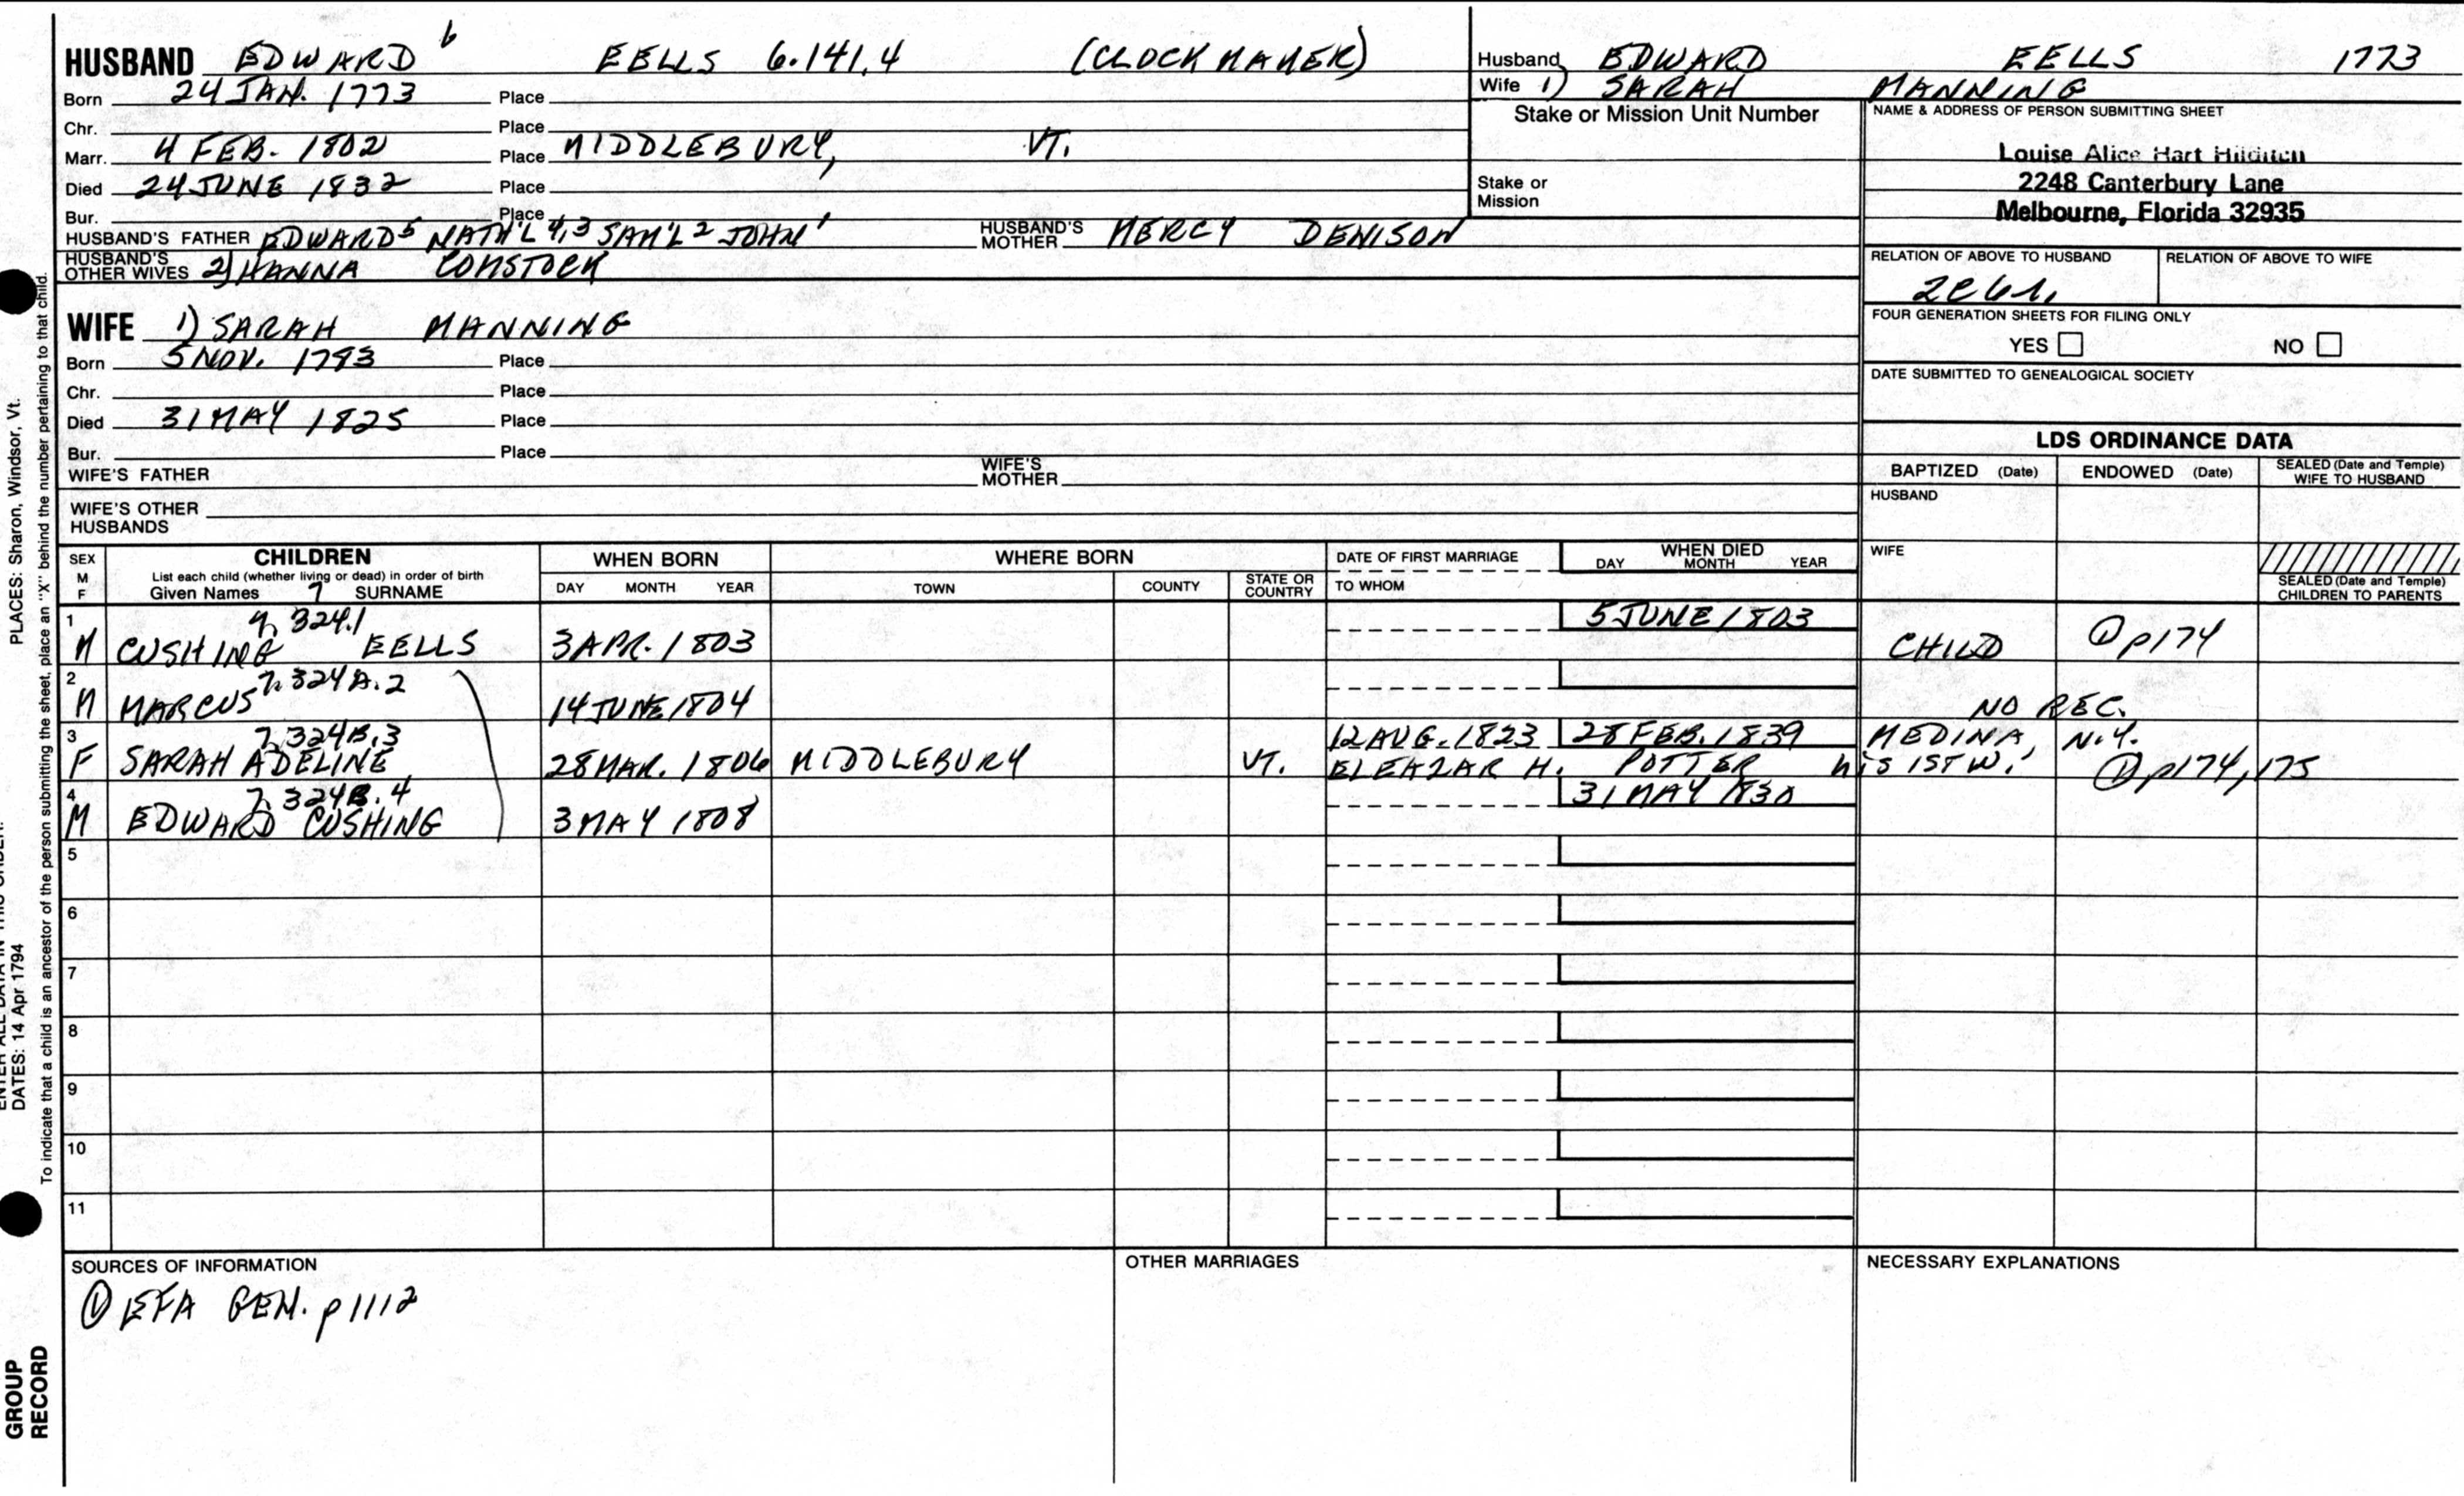 HUSBAND EDWARD 6 EELLS 6.141.4 (CLOCK MAKER)
Born 24 JAN. 1773 Place
Chr. Place
Marr. 4 FEB. 1802 Place MIDDLEBURY, VT.
Died 24 JUNE 1832 Place
Bur. Place
HUSBAND'S FATHER EDWARD 5 NATH'L 4,3 SAM'L 2 JOHN 1 HUSBAND'S MOTHER MERCY DENISON
HUSBAND'S OTHER WIVES 2) HANNA COMSTOCK
Husband EDWARD EELLS 1773
Wife 1) SARAH MANNING
Stake or Mission Unit Number
Stake or Mission
NAME & ADDRESS OF PERSON SUBMITTING SHEET
Louise Alice Hart
2248 Canterbury Lane
Melbourne, Florida 32935
RELATION OF ABOVE TO HUSBAND RELATION OF ABOVE TO WIFE
FOUR GENERATION SHEETS FOR FILING ONLY
YES NO
DATE SUBMITTED TO GENEALOGICAL SOCIETY
WIFE 1) SARAH MANNING
Born 5 NOV. 1783 Place
Chr. Place
Died 31 MAY 1825 Place
Bur. Place
WIFE'S FATHER WIFE'S MOTHER
WIFE'S OTHER HUSBANDS
LDS ORDINANCE DATA
BAPTIZED (Date) ENDOWED (Date) SEALED (Date and Temple) WIFE TO HUSBAND
HUSBAND
WIFE
SEALED (Date and Temple) CHILDREN TO PARENTS
SEX M F CHILDREN WHEN BORN WHERE BORN DATE OF FIRST MARRIAGE WHEN DIED
List each child (whether living or dead) in order of birth
Given Names 7 SURNAME DAY MONTH YEAR TOWN COUNTY STATE OR COUNTRY TO WHOM DAY MONTH YEAR
1 7.324.1 5 JUNE 1803
M CUSHING EELLS 3 APR. 1803 CHILD ① p174
2 7.324A.2
M MARCUS 14 JUNE 1804 NO REC.
3 7.324B.3 12 AUG. 1823 28 FEB. 1839 MEDINA, N.Y.
F SARAH ADELINE 28 MAR. 1806 MIDDLEBURY VT. ELEAZAR H. POTTER his 1ST W. ① p174, 175
4 7.324B.4 31 MAY 1830
M EDWARD CUSHING 3 MAY 1808
5
6
7
8
9
10
11
SOURCES OF INFORMATION OTHER MARRIAGES NECESSARY EXPLANATIONS
① EFA GEN. p1112
PLACES: Sharon, Windsor, Vt.
DATES: 14 Apr 1794
To indicate that a child is an ancestor of the person submitting the sheet, place an "X" behind the number pertaining to that child.
GROUP
RECORD